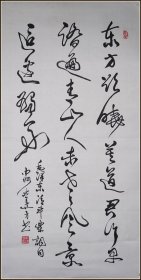 东方欲晓莫道君行早
踏遍青山人未老风景
这边独好
毛泽东清平乐词句